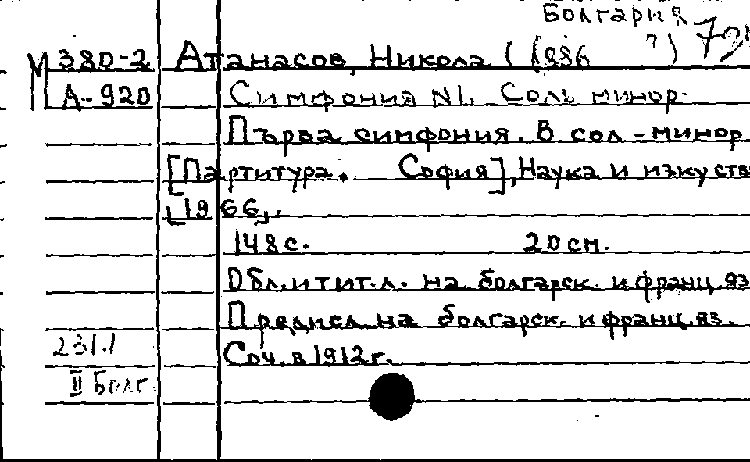 Болгария
М 380-2 Атанасов, Никола (1886 ?)
А-920 Симфония N1. Соль минор.
Първа симфония. В сол-минор
[Партитура. София], Наука и изкуств
[1966].
148 с. 20 см.
Обл. и тит. л. на болгарск. и франц. яз
Предисл. на болгарск. и франц. яз.
231.1
Соч. в 1912 г.
II Болг.